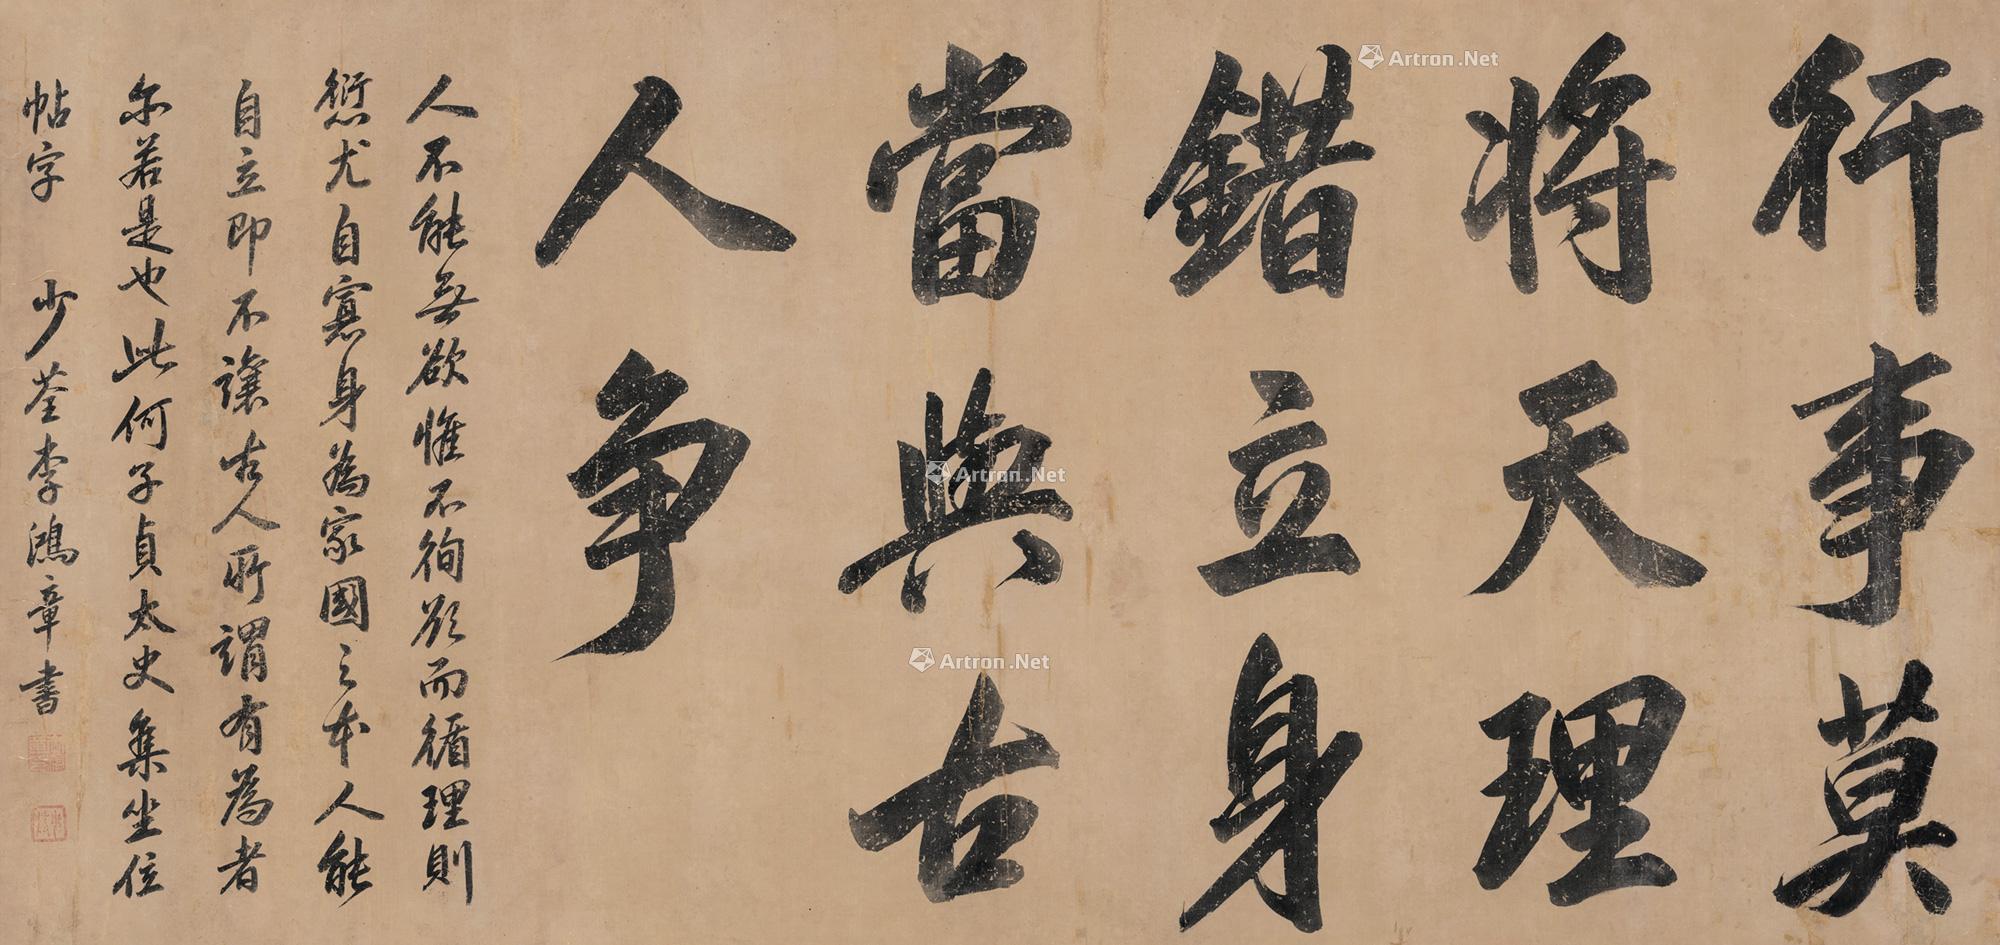 行事莫
將天理
錯立身
當與古
人争
人不能無欲惟不徇欲而循理則
愆尤自寡身為家國之本人能
自立即不讓古人所謂有為者
亦若是也此何子貞太史集坐位
帖字 少荃李鴻章書
Artron.Net
Artron.Net
Artron.Net